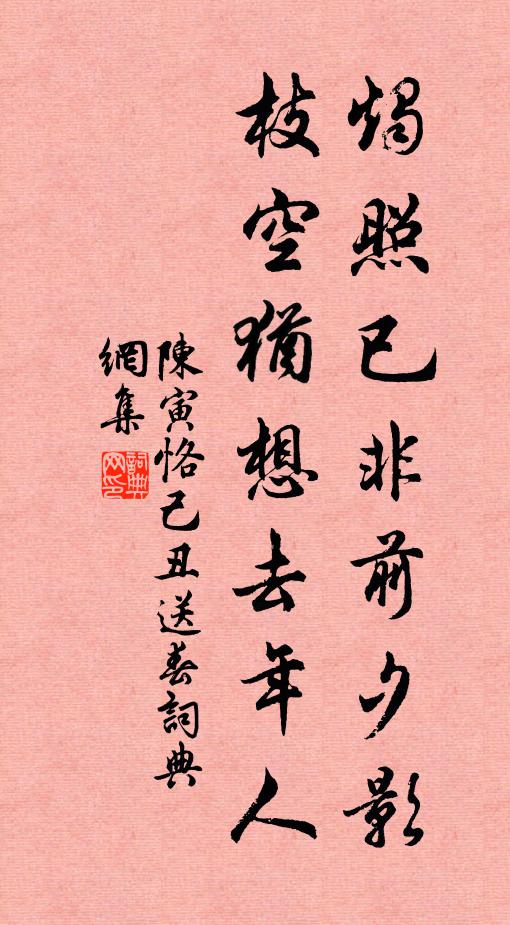 燭照已非前夕影
枝空猶想去年人
陳寅恪己丑送春詞典
網集
詞典網印